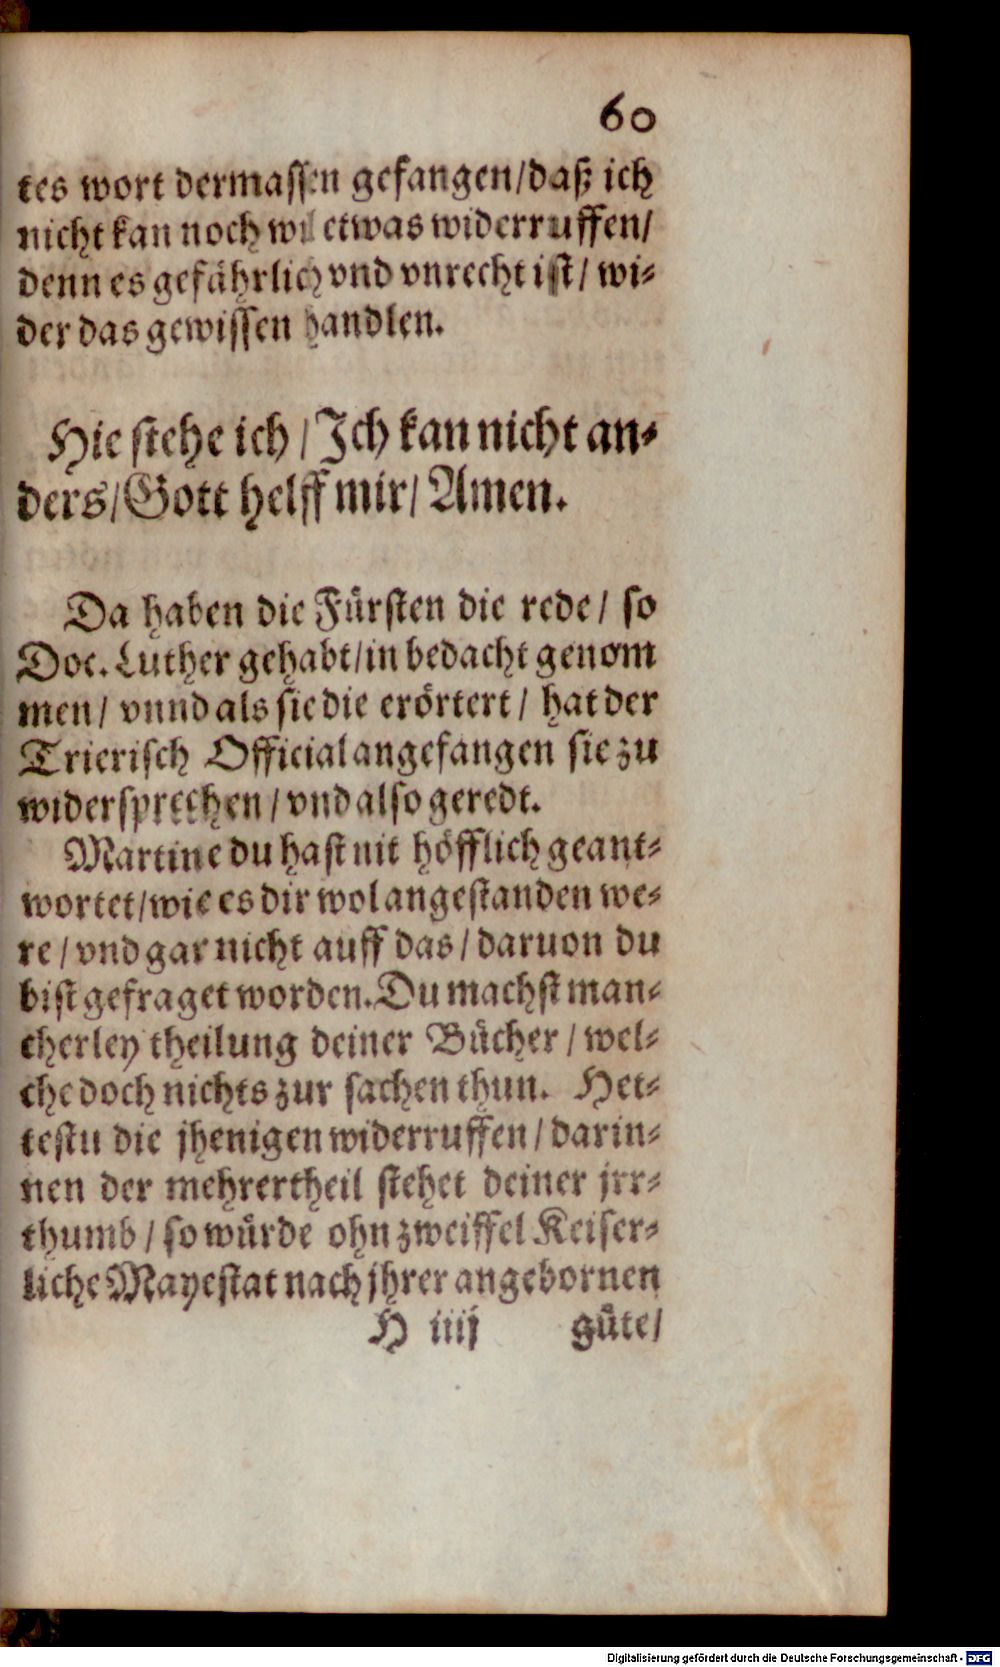 60
tes wort dermassen gefangen/daß ich
nicht kan noch wil etwas widerruffen/
denn es gefährlich vnd vnrecht ist/ wi-
der das gewissen handlen.
Hie stehe ich/Ich kan nicht an-
ders/Gott helff mir/Amen.
Da haben die Fürsten die rede/ so
Doc. Luther gehabt/in bedacht genom
men/ vnnd als sie die erörtert/ hat der
Trierisch Official angefangen sie zu
widersprechen/vnd also geredt.
Martine du hast nit höfflich geant-
wortet/wie es dir wol angestanden we-
re/vnd gar nicht auff das/daruon du
bist gefraget worden. Du machst man-
cherley theilung deiner Bücher/wel-
che doch nichts zur sachen thun. Het-
testu die jhenigen widerruffen/darin-
nen der mehrertheil stehet deiner jrr-
thumb/so würde ohn zweiffel Keiser-
liche Mayestat nach jhrer angebornen
H iiij güte/
Digitalisierung gefördert durch die Deutsche Forschungsgemeinschaft - DFG